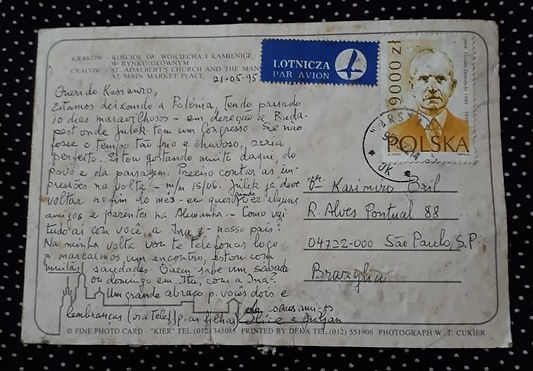 KRAKÓW - KOŚCIÓŁ ŚW. WOJCIECHA I KAMIENICE
W RYNKU GŁÓWNYM
CRACOW - ST. ADALBERT'S CHURCH AND THE MAN
AT MAIN MARKET PLACE
21-05-95
LOTNICZA
PAR AVION
19000 zł
POLSKA
Querido Kasimiro,
Estamos deixando a Polônia, tendo passado
10 dias maravilhosos - em direção a Buda-
pest onde Julek tem um Congresso. Se não
fosse o tempo tão frio e chuvoso, seria
perfeito. Estou gostando muito daqui, do
povo e da paisagem. Preciso contar as im-
pressões na volta - m/m 15/06. Julek já deve
voltar no fim do mes - eu quero ver ainda alguns
amigos e parentes na Alemanha - Como vai
tudo aí com você, a Ina e nosso país?
Na minha volta vou te telefonar logo
e marcaremos um encontro, estou com
muitas saudades. Quem sabe um sabado
ou domingo em Itu, com a Ina?
Um grande abraço p. vocês dois e
lembranças (via telef) p. as filhas dos seus amigos
Kasimiro Bril
R. Alves Pontual 88
04722-000 São Paulo, S.P.
Brazylia
© FINE PHOTO CARD - "KIER" TEL.(012) 345085 PRINTED BY DEKA TEL.(012) 551906 PHOTOGRAPH W. T. CUKIER